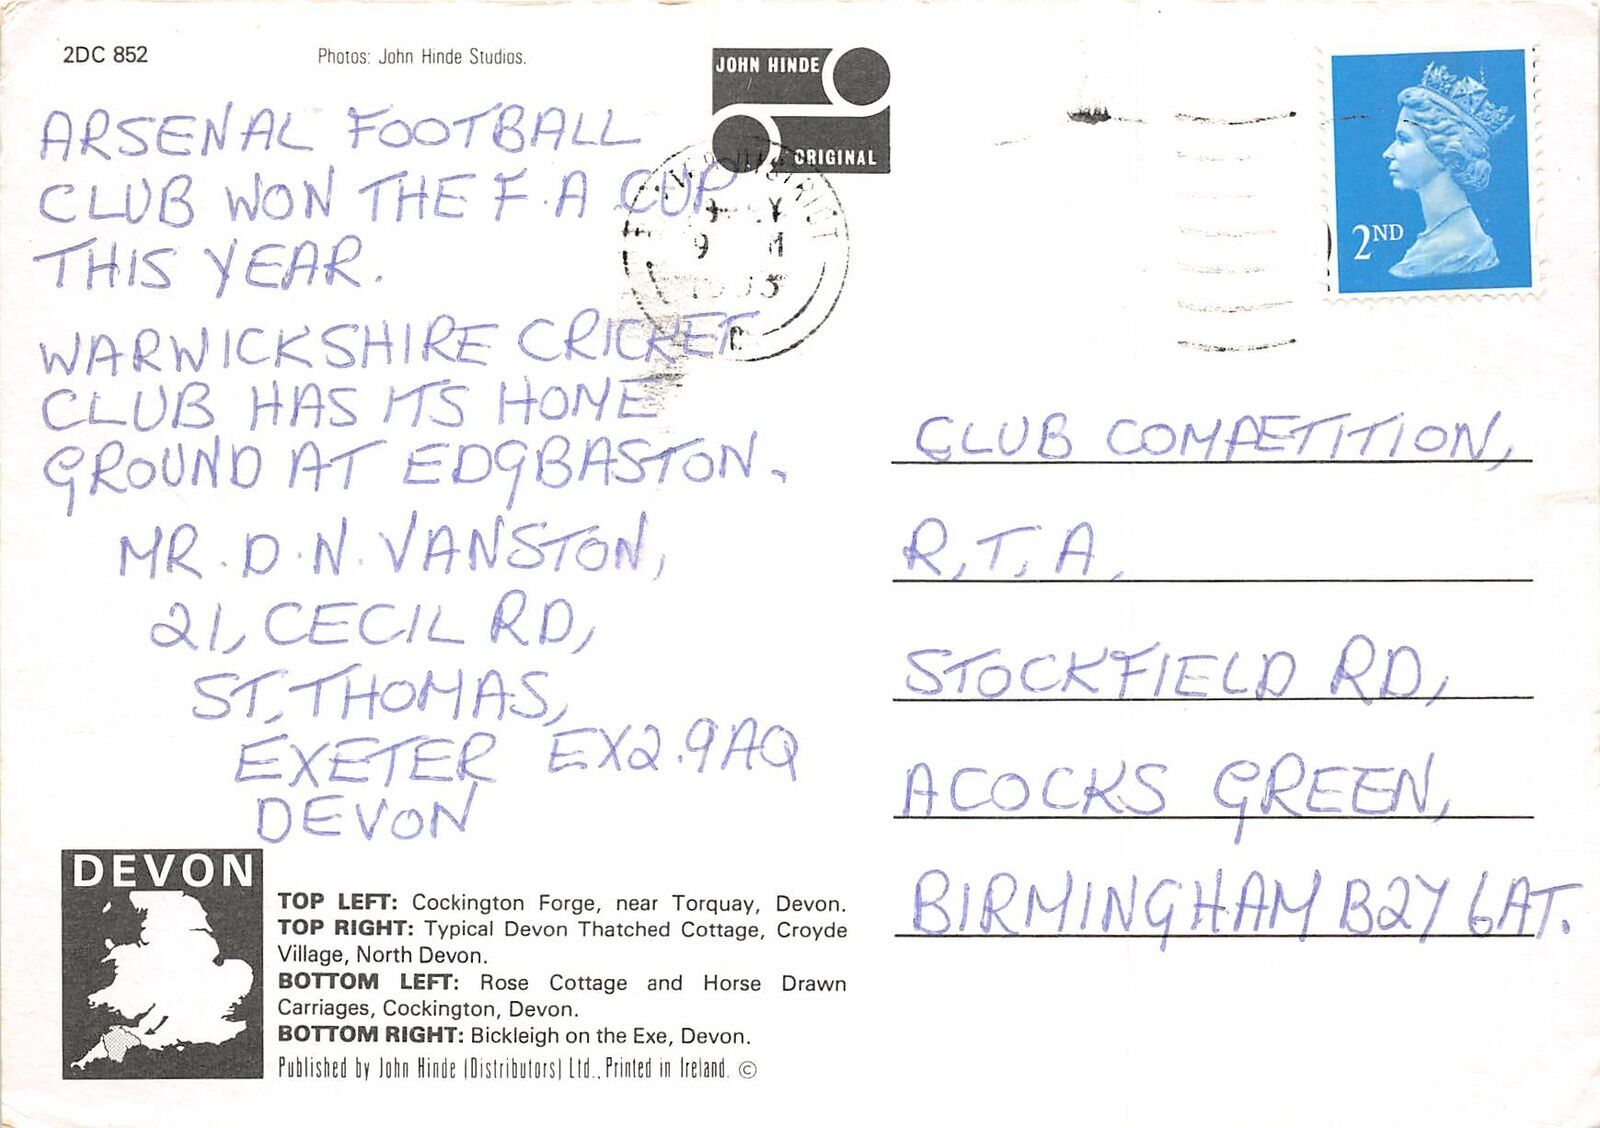 2DC 852
Photos: John Hinde Studios.
JOHN HINDE
ORIGINAL
ARSENAL FOOTBALL
CLUB WON THE F.A CUP
THIS YEAR.
WARWICKSHIRE CRICKET
CLUB HAS ITS HOME
GROUND AT EDGBASTON.
MR. D. N. VANSTON,
21, CECIL RD,
ST. THOMAS,
EXETER EX2.9AQ
DEVON
DEVON
TOP LEFT: Cockington Forge, near Torquay, Devon.
TOP RIGHT: Typical Devon Thatched Cottage, Croyde
Village, North Devon.
BOTTOM LEFT: Rose Cottage and Horse Drawn
Carriages, Cockington, Devon.
BOTTOM RIGHT: Bickleigh on the Exe, Devon.
Published by John Hinde (Distributors) Ltd., Printed in Ireland. ©
2ND
CLUB COMPETITION,
R.T.A,
STOCKFIELD RD,
ACOCKS GREEN,
BIRMINGHAM B27 6AT.